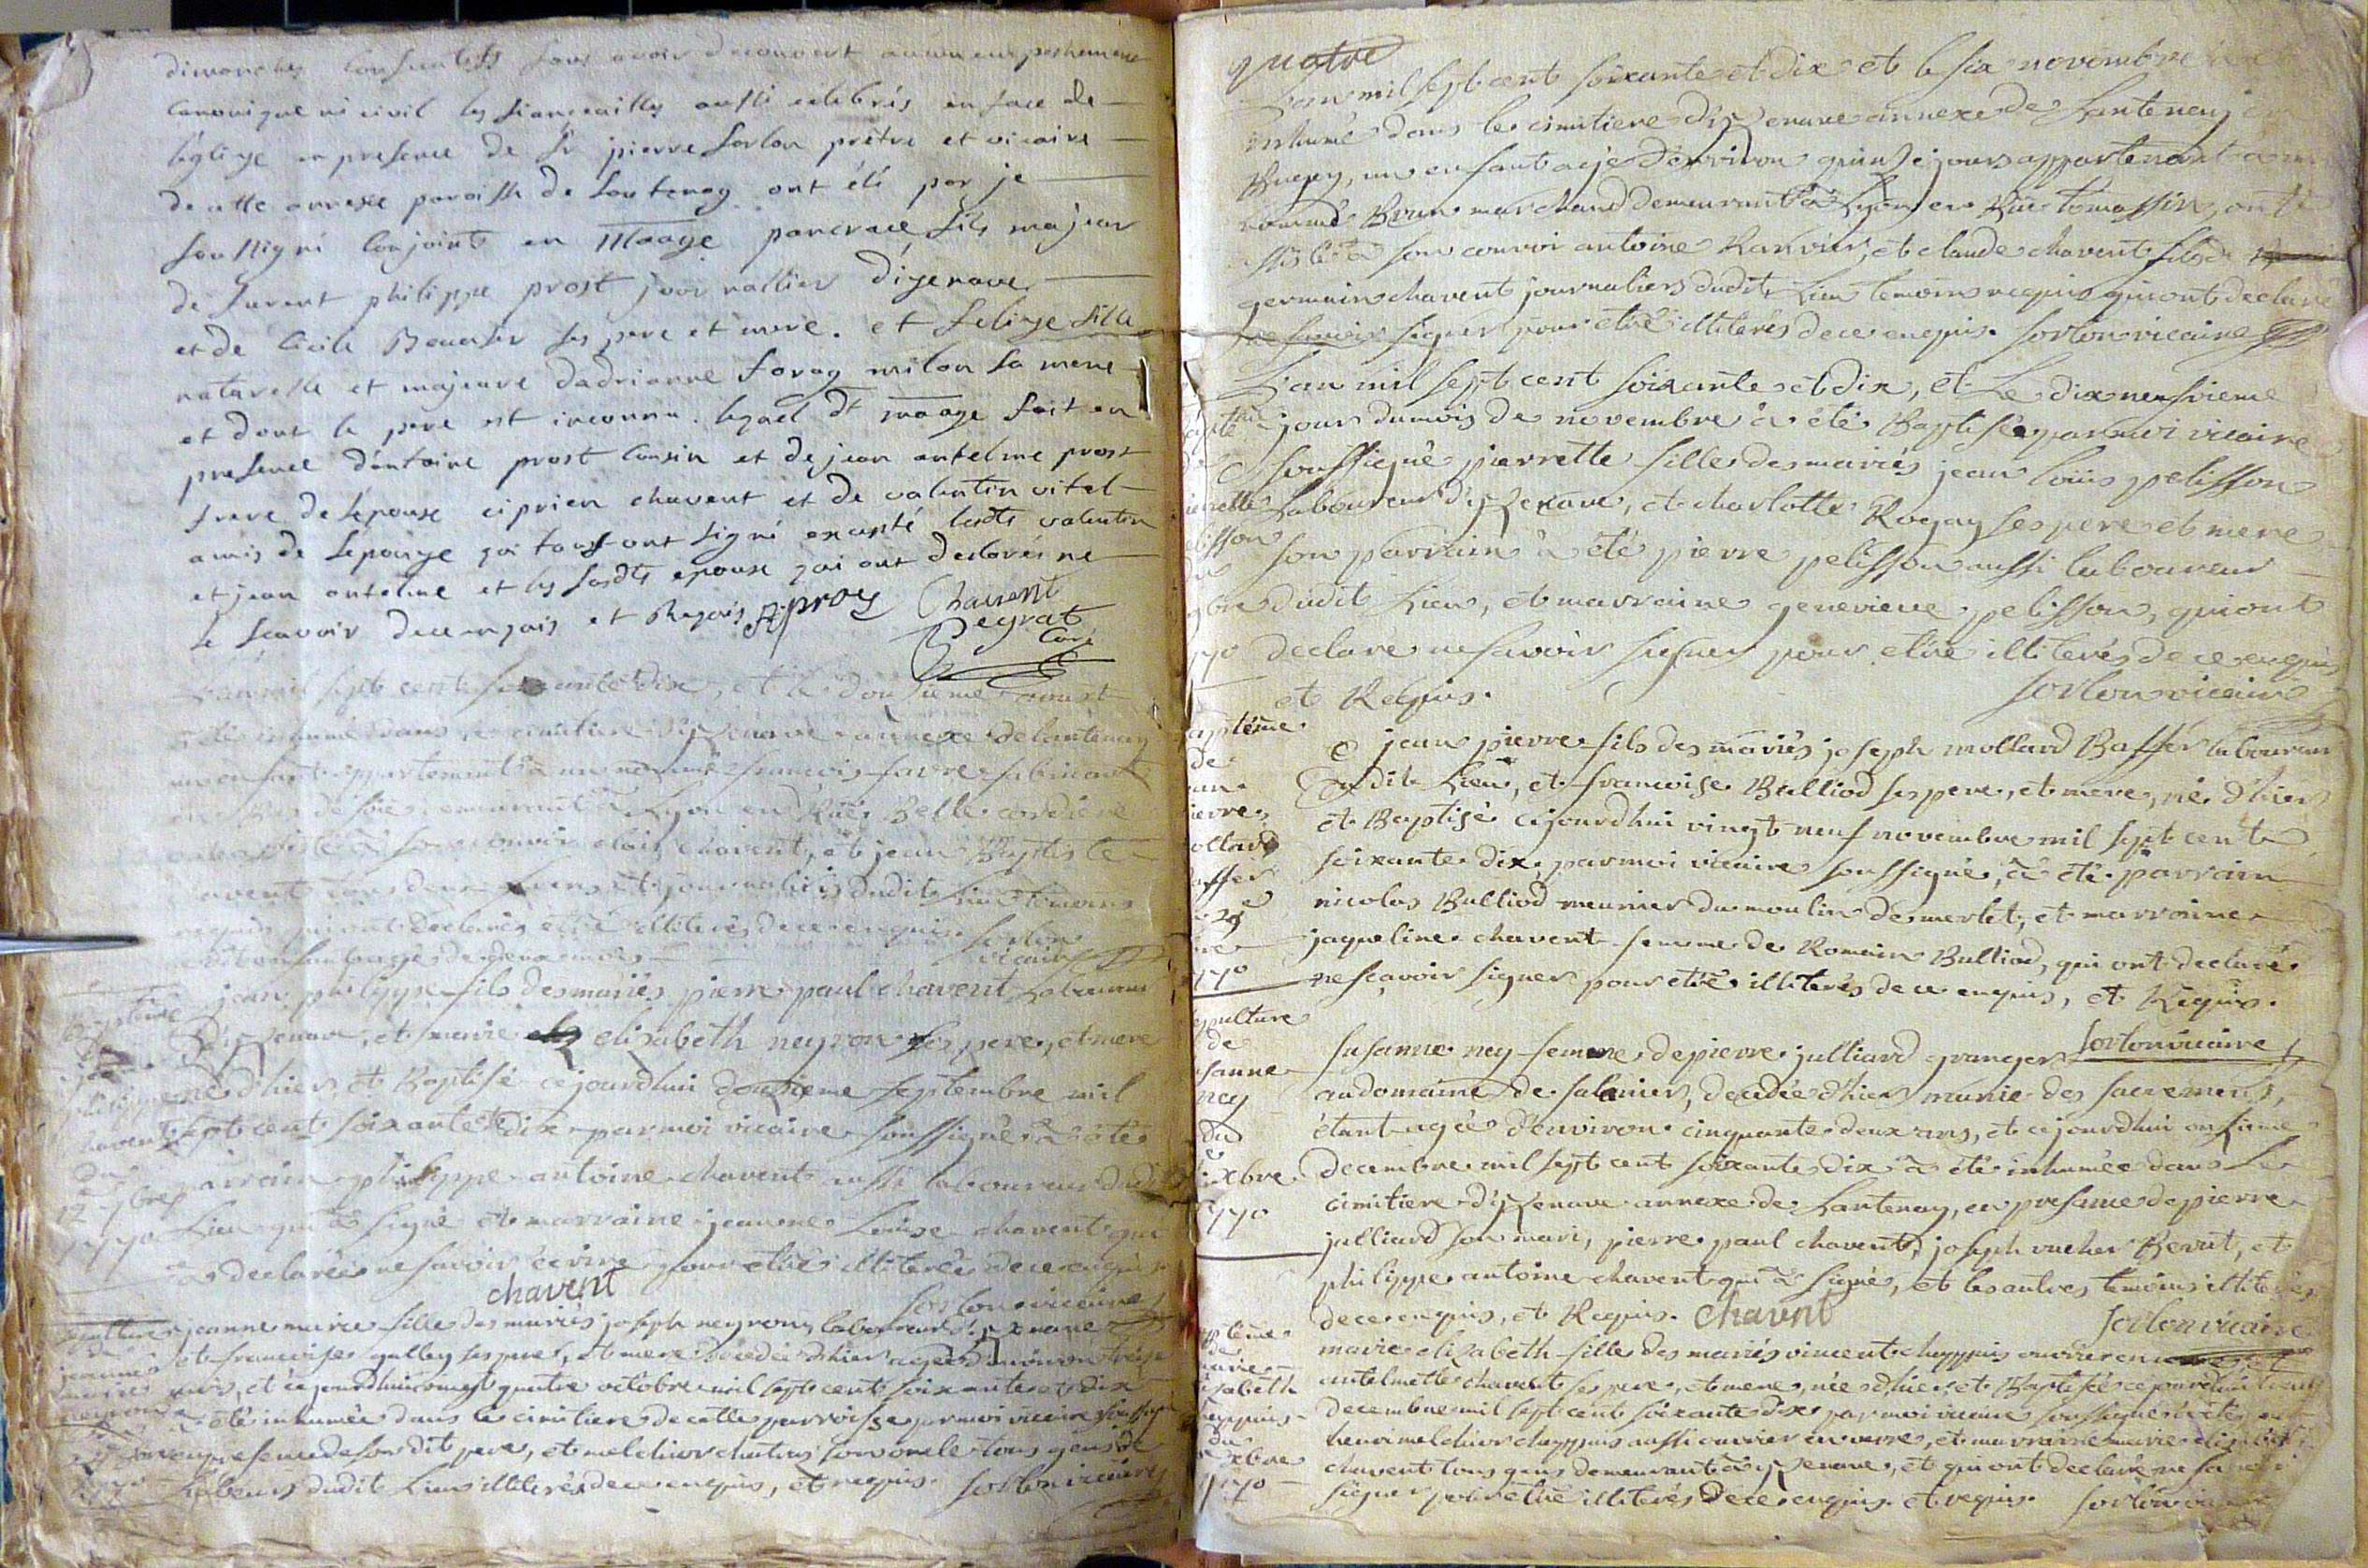 dimanches consecutifs sans avoir decouvert aucun empeschement
canonique ni civil les fiançailles aussi celebrés en face de
l'eglise en presence de Sr pierre sorlon prêtre et vicaire
de cette annexe paroisse de Lantenay ont été par je
soussigné conjoints en Maage pancrace fils majeur
de Laurent philippe prost journallier d'izenave
et de Cécile ses pere et mere. et felize fille
naturelle et majeure dadrianne favay milon sa mere
et dont le pere est inconnu. lequel dt maage fait en
presence d'antoine prost cousin et de jean antelme prost
frere de l'epouse ciprien chavent et de valentin vitel
amis de l'epouze qui tous ont signé excepté lesdts valentin
et jean antelme et les susdts epoux qui ont declarés ne
le scavoir de ce enquis et Requis A proz Chavent
Peyrat
Curé
L'an mil sept cent soixante dix, et le douzieme aoust
a été inhumé dans le cimitiere d'izenave annexe de lantenay
un enfant appartenant à un nommé francois favre fabricant
en bas de soie demeurant à Lyon en Rüe Belle cordiere
ont assisté à son convoi chavent, et jean Baptiste
chavent tous deux et journaliers dudit lieu temoins
requis qui ont declarés être illiterés de ce enquis. sorlon
ledit enfant agé de deux mois vicaire
jean philippe fils des mariés pierre paul chavent Laboureur
d'izenave, et marie elizabeth neyron ses pere, et mere
né d'hier, et Baptisé cejourdhui douzieme septembre mil
sept cent soixante et dix par moi vicaire soussigné à été
parrain philippe antoine chavent aussi laboureur dudit
Lieu qui à signé et marraine jeanne Louise chavent qui
à declarée ne savoir ecrire pour etre illiterée de ce enquis
chavent
sorlon vicaire
Baptême
de
jean
philippe
chavent
du
12 7bre
1770
jeanne marie fille des mariés joseph neyron, laboureur d'izenave
et francoise gulley ses pere, et mere decedée d'hier agée d'environ treize
mois, et cejourdhui vingt quatre octobre mil sept cent soixante et dix
à été inhumée dans le cimitiere de cette parroisse par moi vicaire soussigné
en presence de son dit pere, et melchior son oncle tous gens de
labeurs dudit Lieu illiterés de ce enquis, et requis. sorlon vicaire
sepulture
de
jeanne
marie
neyron
1770
quatre
L'an mil sept cent soixante et dix et le six novembre
inhumé dans le cimitiere d'izenave annexe de Lantenay en
Bugey, un enfant agé d'environ quinze jours appartenant à un
nommé Brun marchand demeurant à Lyon en Rüe tomassin, ont
assisté à son convoi antoine Ranvier, et claude chavent fils de
germain chavent journaliers dudit Lieu temoins requis qui ont declaré
ne savoir signer pour etre illiterés de ce enquis. sorlon vicaire
L'an mil sept cent soixante et dix, et Le dix neufvieme
jour du mois de novembre à été Baptisée par moi vicaire
soussigné pierrette fille des mariés jean loüis pelisson
Laboureur d'izenave, et charlotte Rogay ses pere et mere
son parrain à été pierre pelisson aussi laboureur
dudit Lieu, et marraine genevieve pelisson, qui ont
declaré ne savoir signer pour etre illiterés de ce enquis
et Requis. sorlon vicaire
jean pierre fils des mariés joseph mollard Baffer laboureur
dudit Lieu, et francoise Bulliod ses pere, et mere, né d'hier
et Baptisé cejourdhui vingt neuf novembre mil sept cent
soixante dix, par moi vicaire soussigné, à été parrain
nicolas Bulliod meunier du moulin de merlet, et marraine
jaqueline chavent femme de Romain Bulliod, qui ont declarés
ne sçavoir signer pour etre illiterés de ce enquis, et Requis.
sorlon vicaire
aptême
de
ierre
ollard
affer
29
1770
susanne ney femme de pierre julliard granger
au domaine de salanier, decedée d'hier munie des sacremens,
étant agée d'environ cinquante deux ans, et cejourdhui onzieme
decembre mil sept cent soixante dix à été inhumée dans Le
cimitiere d'izenave annexe de Lantenay, en presance de pierre
julliard son mari, pierre paul chavent, joseph vucher Berut, et
philippe antoine chavent qui à signé, et les autres temoins illiterés
de ce enquis, et Requis. chavent sorlon vicaire
epulture
de
sanne
ney
du
xbre
1770
marie elizabeth fille des mariés vincent chappuis ouvrier en
antelmette chavent ses pere, et mere, née d'hier et Baptisée cejourdhui
decembre mil sept cent soixante dix par moi vicaire soussigné à été
henri melchior chappuis aussi ouvrier en verre, et marraine marie
chavent tous gens demeurant à izenave, et qui ont declaré ne savoir
signer pour etre illiterés de ce enquis. et requis. sorlon
de
xbre
1770